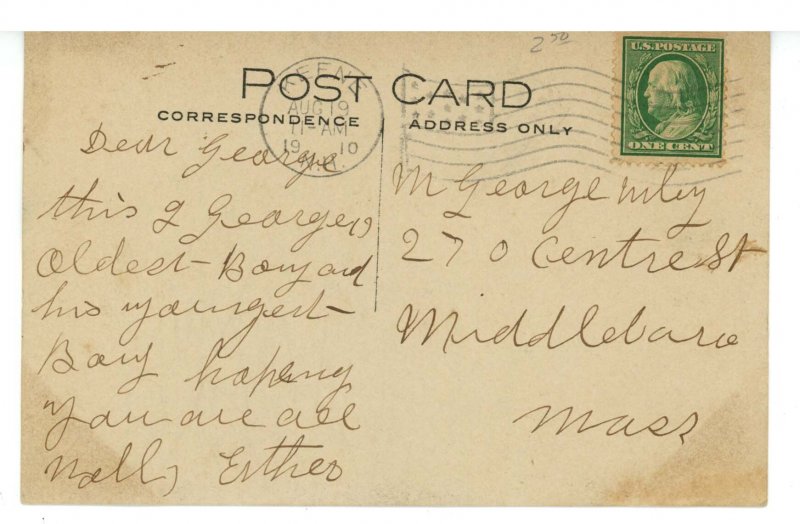 2 50
U.S. POSTAGE
ONE CENT
POST CARD
CORRESPONDENCE
ADDRESS ONLY
KEENE
AUG 19
11-AM
19 10
N.H.
Dear George
this is Georges
oldest Bouy and
his youngest
Bouy hopeing
you are all
well, Esther
Mr George
270 Centre St
Middleboro
Mass